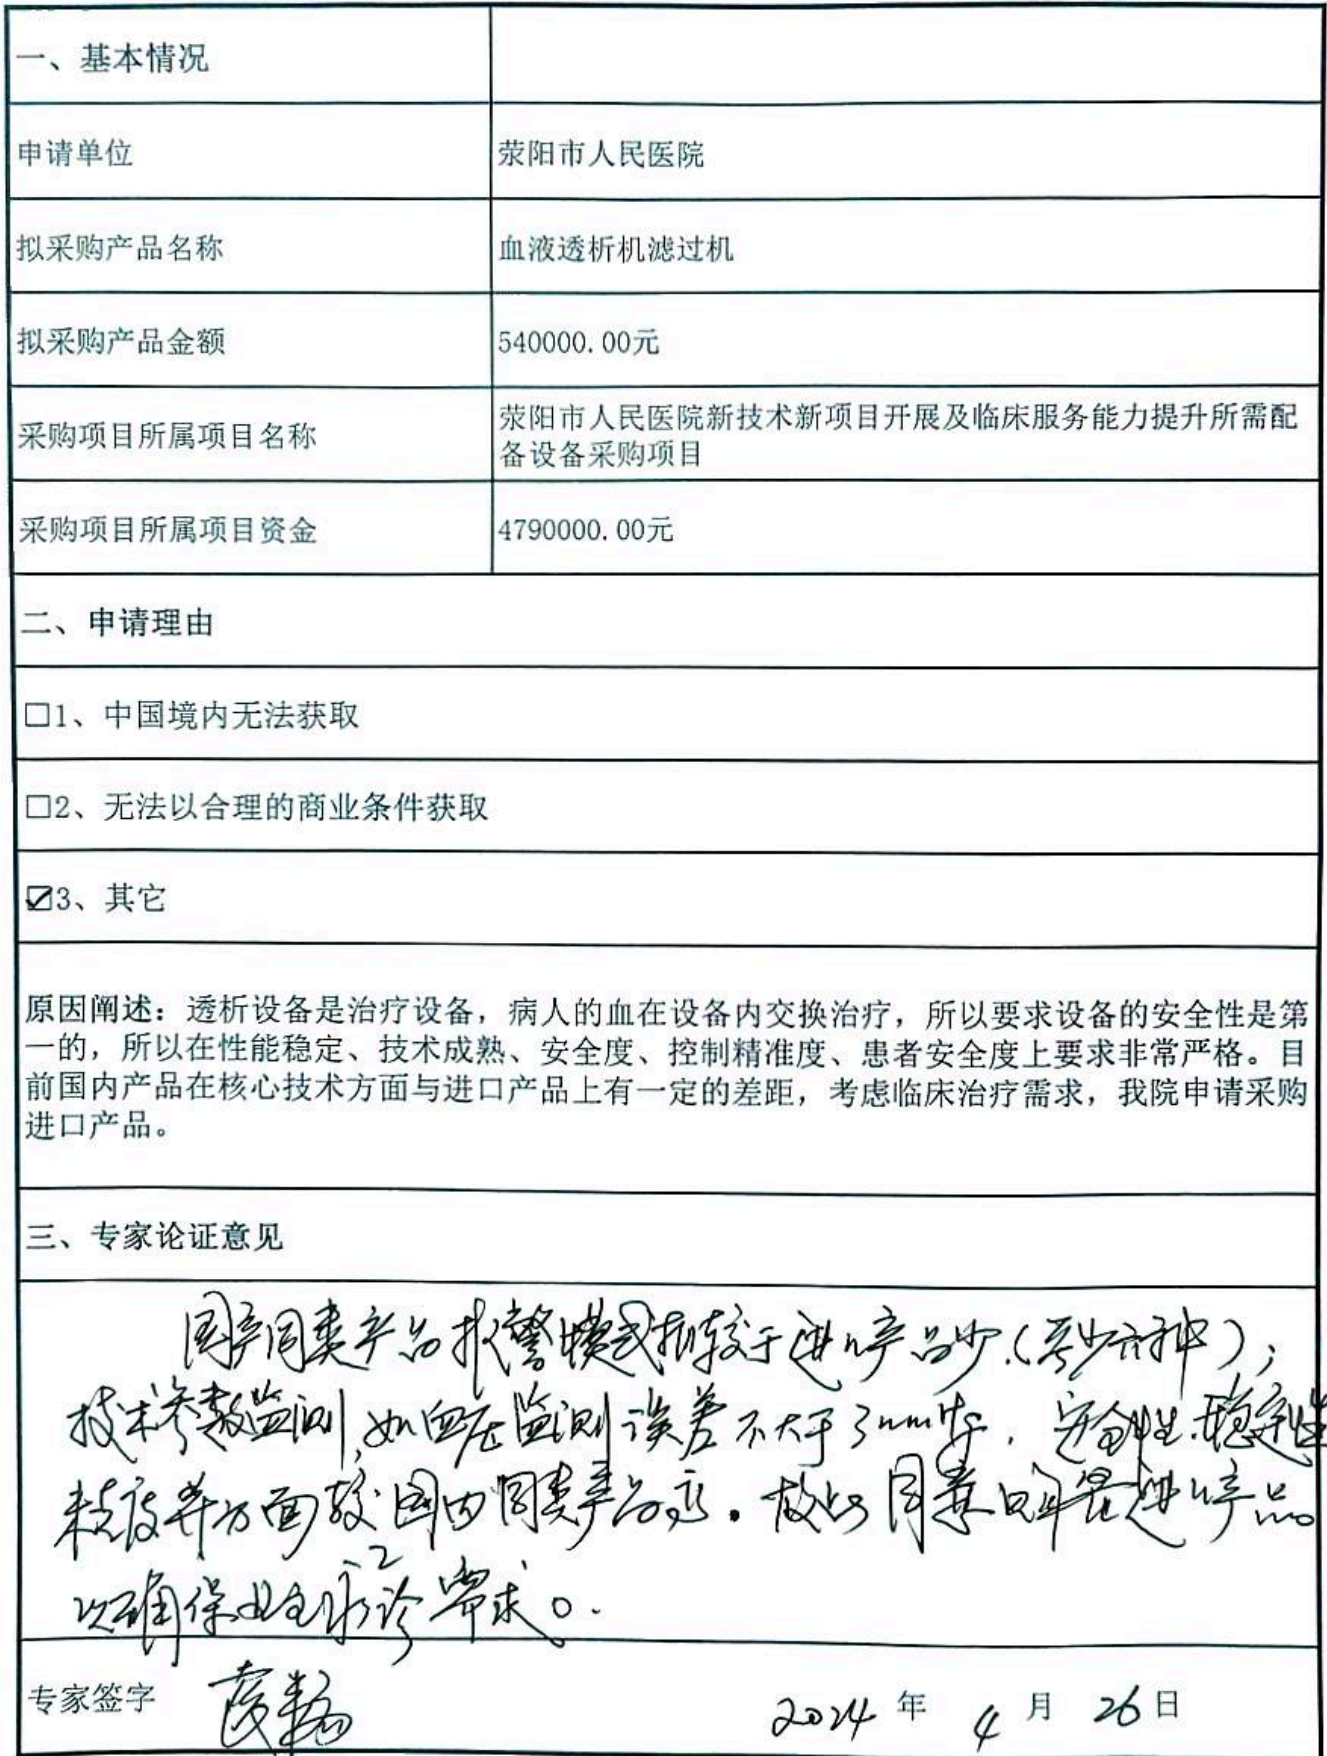 一、基本情况
申请单位
荥阳市人民医院
拟采购产品名称
血液透析机滤过机
拟采购产品金额
540000.00元
采购项目所属项目名称
荥阳市人民医院新技术新项目开展及临床服务能力提升所需配
备设备采购项目
采购项目所属项目资金
4790000.00元
二、申请理由
□1、中国境内无法获取
□2、无法以合理的商业条件获取
☑3、其它
原因阐述：透析设备是治疗设备，病人的血在设备内交换治疗，所以要求设备的安全性是第
一的，所以在性能稳定、技术成熟、安全度、控制精准度、患者安全度上要求非常严格。目
前国内产品在核心技术方面与进口产品上有一定的差距，考虑临床治疗需求，我院申请采购
进口产品。
三、专家论证意见
国产同类产品报警模式相较于进口产品少（至少六种），
技术参数监测，如血压监测误差不大于3mm，安全性、稳定性
精度等方面较国内同类产品。故同意采进口产品
以确保临诊需求。
专家签字
2024年4月26日